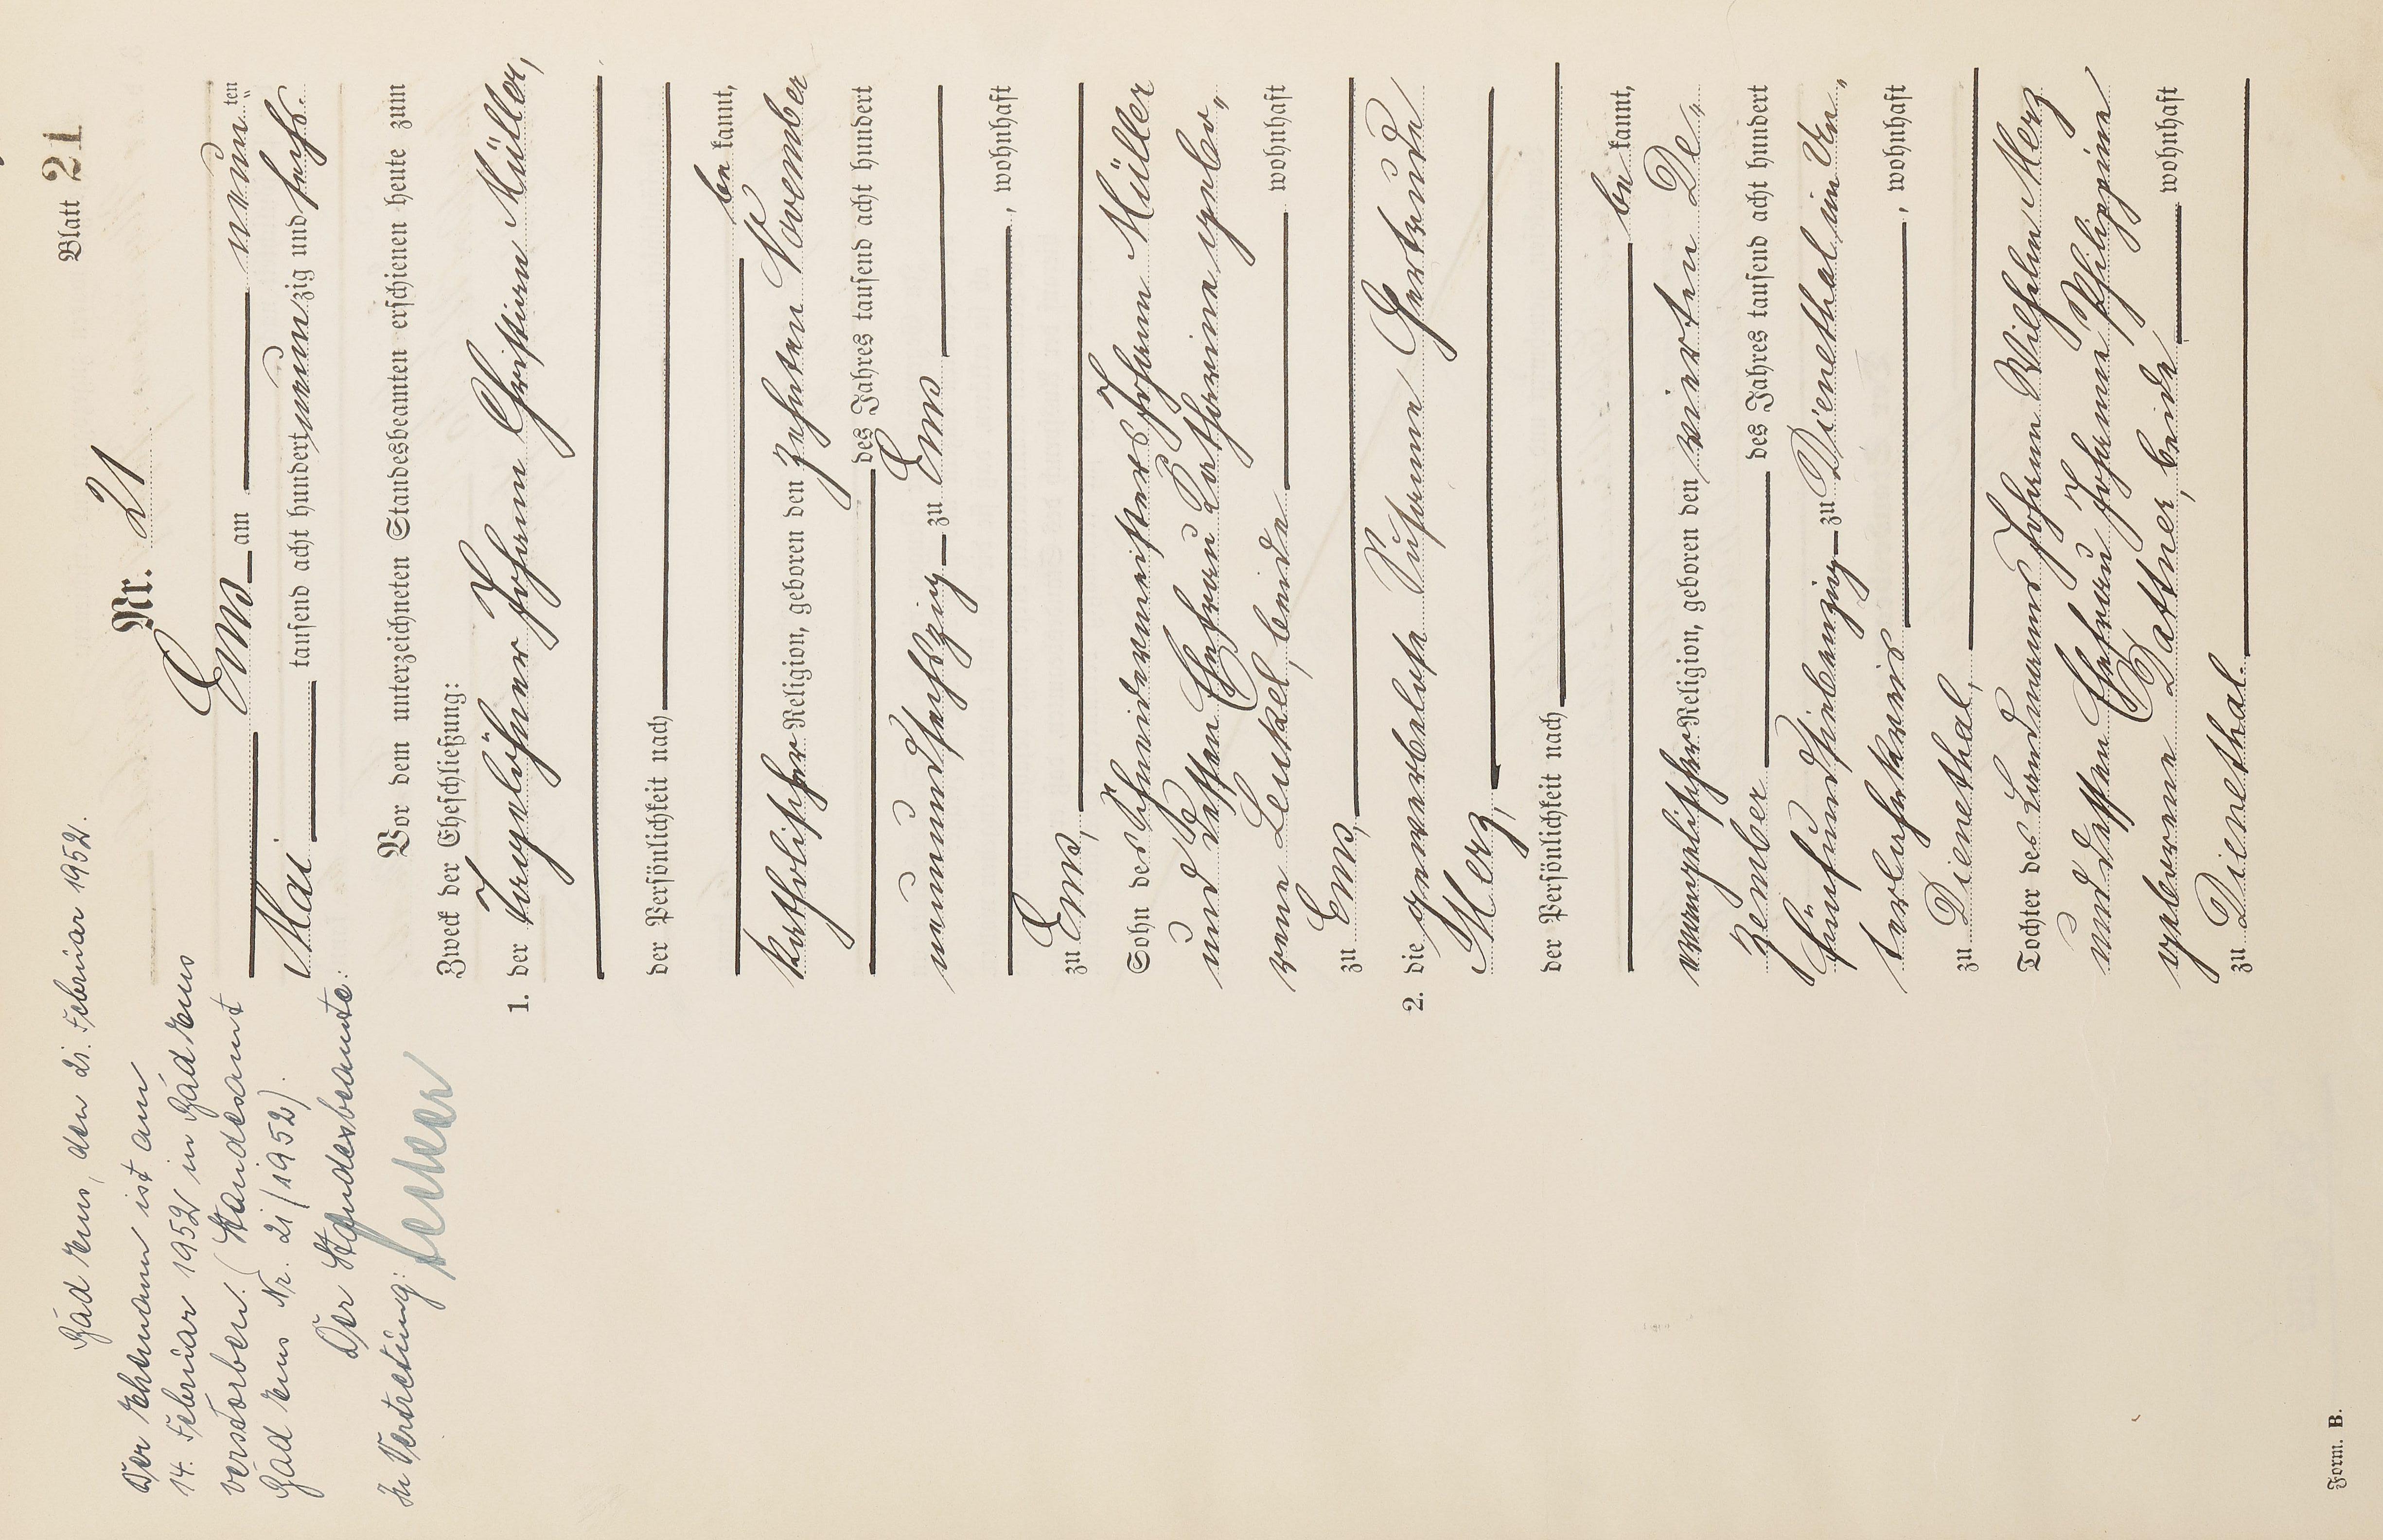 Blatt 21
Nr. 21
Ems am neun ten
Mai tausend acht hundert neunzig und sechs.
Vor dem unterzeichneten Standesbeamten erschienen heute zum
Zweck der Eheschließung:
1. der Tagelöhner Johann Christian Müller,
der Persönlichkeit nach
be kannt,
katholischer Religion, geboren den zehnten November
des Jahres tausend acht hundert
neunundsechszig zu Ems
, wohnhaft
zu Ems,
Sohn des Schneidermeisters Johann Müller
und dessen Ehefrau Katharine gebo„
rene Leukel, beide wohnhaft
zu Ems,
2. die gewerbelose Susanne Gertrude
Merz,
der Persönlichkeit nach
be kannt,
evangelischer Religion, geboren den vierten De„
zember des Jahres tausend acht hundert
fünfundsiebenzig zu Dienethal im Un„
terlahnkreis , wohnhaft
zu Dienethal,
Tochter des Landmanns Johann Wilhelm Merz
und dessen Ehefrau Johanna Philippine
geborene Dattner, beide wohnhaft
zu Dienethal.
Bad Ems, den 21. Februar 1952.
Der Ehemann ist am
14. Februar 1952 in Bad Ems
verstorben. (Standesamt
Bad Ems Nr. 21/1952).
Der Standesbeamte:
In Vertretung:
Form. B.